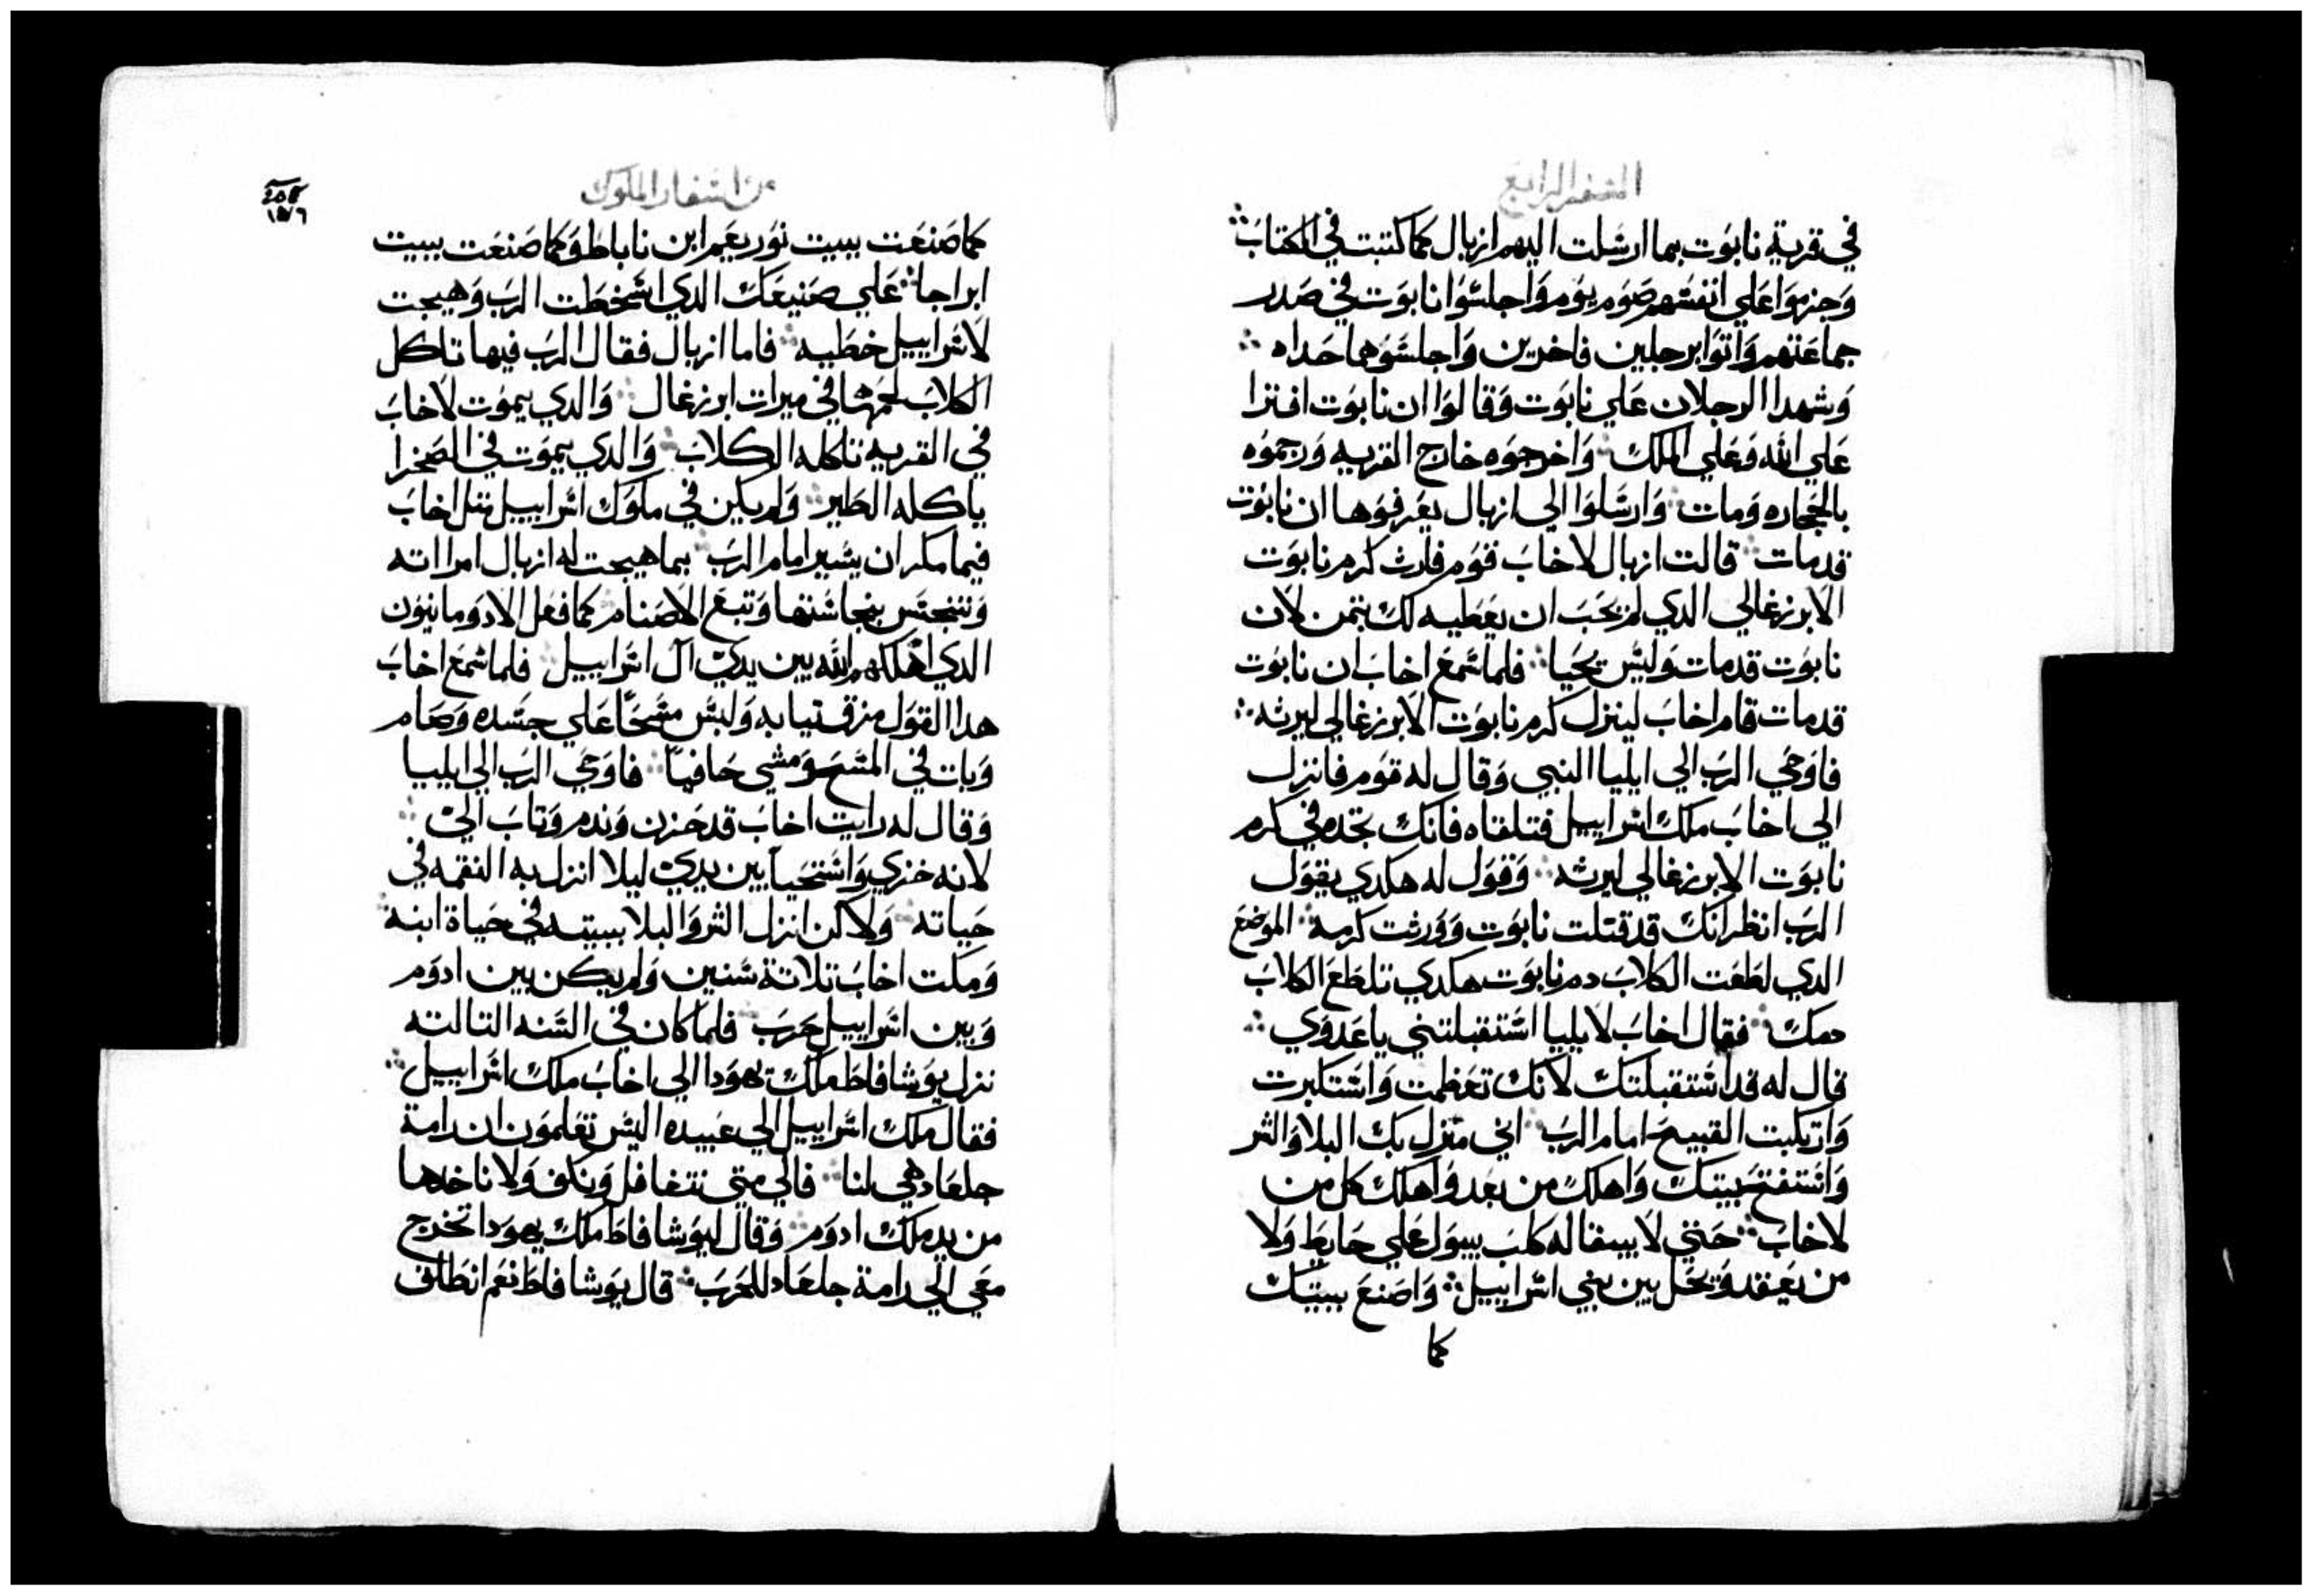 السفر الرابع
في قرية نابوت بما ارسلت اليهم ازبال كما كتبت في الكتاب
وجزموا على انفسهم صوم يوم واجلسوا نابوت في صدر
جماعتهم واتوا برجلين فاخرين واجلسوهما حداه
وشهدا الرجلان علي نابوت وقالوا ان نابوت افترا
علي الله وعلي الملك واخرجوه خارج القريه ورجموه
بالحجاره ومات وارسلوا الي ازبال يعرفوها ان نابوت
قدمات قالت ازبال لاخاب قوم فارث كرم نابوت
الابرزغالي الدي لم يحب ان يعطيه لك بتمن لان
نابوت قدمات وليس يحيا فلما سمع اخاب ان نابوت
قدمات قام اخاب لينزل كرم نابوت الابرزغالي ليرثه
فاوحي الرب الي ايليا النبي وقال له قوم فانزل
الي اخاب ملك اسراييل فتلقاه فانك تجده في كرم
نابوت الابرزغالي ليرثه وقول له هكدي يقول
الرب انظر انك قد قتلت نابوت وورثت كرمه الموضع
الدي لطعت الكلاب دم نابوت هكدي تلطع الكلاب
دمك فقال اخاب لايليا استقبلتني يا عدوي
قال له قد استقبلتك لانك تعظمت واستكبرت
وارتكبت القبيح امام الرب اني منزل بك البلا والشر
واستفتح بيتك واهلك من بعد واهلك كل من
لاخاب حتي لا يبقا له كلب يبول علي حايط ولا
من يعقد ويحل بين بني اسراييل واصنع ببيتك
كما
من اسفار الملوك
كما صنعت ببيت نوريعم ابن ناباط وكما صنعت ببيت
ابراجا علي صنيعك الدي اسخطت الرب وهيجت
لاسراييل خطيه فاما ازبال فقال الرب فيها تاكل
الكلاب لحمها في ميرات ابرزغال والدي يموت لاخاب
في القريه تاكله الكلاب والدي يموت في الصحرا
ياكله الطير ولم يكن في ملوك اسراييل متل اخاب
فيما مكر ان يسير امام الرب بما هيجت له ازبال امراته
وتنجس بنجاستها وتبع الاصنام كما فعل الادومانيون
الدي اهلكهم الله بين يدي آل اسراييل فلما سمع اخاب
هدا القول مزق تيابه ولبس مسحًا علي جسده وصام
وبات في المسح ومشي حافيًا فاوحي الرب الي ايليا
وقال له رايت اخاب قد حزن وندم وتاب اليّ
لانه خزي واستحيا بين يديّ ليلا انزل به النقمه في
حياته ولاكن انزل الشر والبلا ببيته في حياة ابنه
ومكت اخاب تلاتة سنين ولم يكن بين ادوم
وبين اسراييل حرب فلما كان في السنه التالته
نزل يوشافاط ملك يهودا الي اخاب ملك اسراييل
فقال ملك اسراييل الي عبيده اليس تعلمون ان رامة
جلعاد هي لنا فالي متي نتغافل ونكف ولا ناخدها
من يد ملك ادوم وقال ليوشافاط ملك يهودا تخرج
معي الي رامة جلعاد للحرب قال يوشافاط نعم انطلق